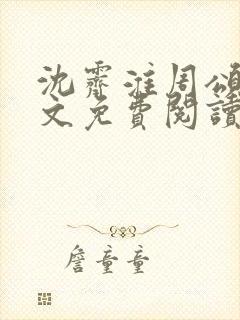 沈霽淮周頌
文免費閱讀
詹童童